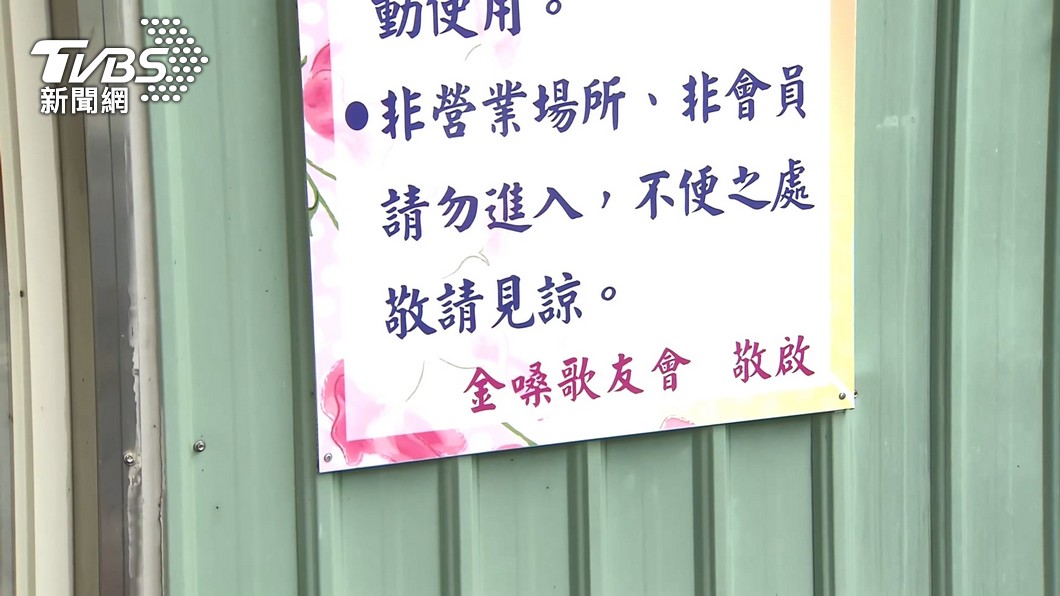 TVBS
新聞網
動使用。
●非營業場所、非會員
請勿進入，不便之處
敬請見諒。
金嗓歌友會 敬啟